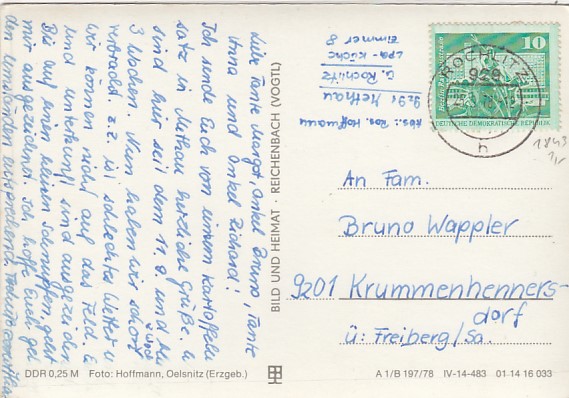 Liebe Tante Margot, Onkel Bruno, Tante
Anna und Onkel Richard!
Ich sende Euch von einem Kartoffelein
satz in Methau herzliche Grüße. Wir
sind hier seit dem 11.9. und bleiben
3 Wochen. Nun haben wir schon
verbracht. z.Z. ist schlechtes Wetter u
wir können nicht auf das Feld. E
und Unterkunft sind ausgezeichn
Bis auf einen kleinen Schnupfen geht
mir ausgezeichnet. Ich hoffe Euch geh
den Umständen entsprechend
Abs.: Ros. Hoffmann
9291 Methau
ü. Rochlitz
LPG - Küche
Zimmer 8
BILD UND HEIMAT · REICHENBACH (VOGTL)
10
DEUTSCHE DEMOKRATISCHE REPUBLIK
ROCHLITZ
929
h
1843
An Fam.
Bruno Wappler
9201 Krummenhenners-
dorf
ü: Freiberg/Sa.
DDR 0,25 M Foto: Hoffmann, Oelsnitz (Erzgeb.)
A 1/B 197/78 IV-14-483 01 14 16 033